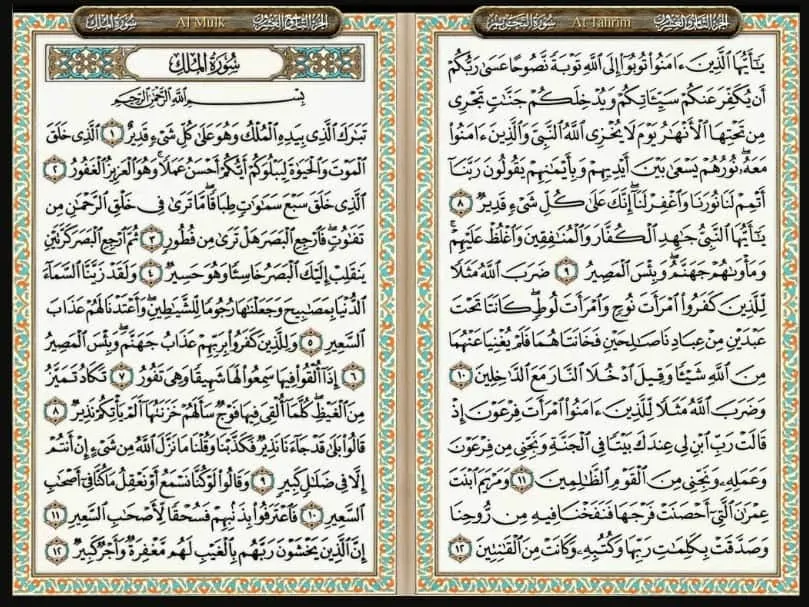 الجزء الثامن والعشرون
At Tahrim
سورة التحريم
يَـٰٓأَيُّهَا ٱلَّذِينَ ءَامَنُوا۟ تُوبُوٓا۟ إِلَى ٱللَّهِ تَوْبَةً نَّصُوحًا عَسَىٰ رَبُّكُمْ
أَن يُكَفِّرَ عَنكُمْ سَيِّـَٔاتِكُمْ وَيُدْخِلَكُمْ جَنَّـٰتٍ تَجْرِى
مِن تَحْتِهَا ٱلْأَنْهَـٰرُ يَوْمَ لَا يُخْزِى ٱللَّهُ ٱلنَّبِىَّ وَٱلَّذِينَ ءَامَنُوا۟
مَعَهُۥ ۖ نُورُهُمْ يَسْعَىٰ بَيْنَ أَيْدِيهِمْ وَبِأَيْمَـٰنِهِمْ يَقُولُونَ رَبَّنَآ
أَتْمِمْ لَنَا نُورَنَا وَٱغْفِرْ لَنَآ ۖ إِنَّكَ عَلَىٰ كُلِّ شَىْءٍ قَدِيرٌ ٨
يَـٰٓأَيُّهَا ٱلنَّبِىُّ جَـٰهِدِ ٱلْكُفَّارَ وَٱلْمُنَـٰفِقِينَ وَٱغْلُظْ عَلَيْهِمْ ۚ
وَمَأْوَىٰهُمْ جَهَنَّمُ ۖ وَبِئْسَ ٱلْمَصِيرُ ٩ ضَرَبَ ٱللَّهُ مَثَلًا
لِّلَّذِينَ كَفَرُوا۟ ٱمْرَأَتَ نُوحٍ وَٱمْرَأَتَ لُوطٍ ۖ كَانَتَا تَحْتَ
عَبْدَيْنِ مِنْ عِبَادِنَا صَـٰلِحَيْنِ فَخَانَتَاهُمَا فَلَمْ يُغْنِيَا عَنْهُمَا
مِنَ ٱللَّهِ شَيْـًٔا وَقِيلَ ٱدْخُلَا ٱلنَّارَ مَعَ ٱلدَّٰخِلِينَ ١٠
وَضَرَبَ ٱللَّهُ مَثَلًا لِّلَّذِينَ ءَامَنُوا۟ ٱمْرَأَتَ فِرْعَوْنَ إِذْ
قَالَتْ رَبِّ ٱبْنِ لِى عِندَكَ بَيْتًا فِى ٱلْجَنَّةِ وَنَجِّنِى مِن فِرْعَوْنَ
وَعَمَلِهِۦ وَنَجِّنِى مِنَ ٱلْقَوْمِ ٱلظَّـٰلِمِينَ ١١ وَمَرْيَمَ ٱبْنَتَ
عِمْرَٰنَ ٱلَّتِىٓ أَحْصَنَتْ فَرْجَهَا فَنَفَخْنَا فِيهِ مِن رُّوحِنَا
وَصَدَّقَتْ بِكَلِمَـٰتِ رَبِّهَا وَكُتُبِهِۦ وَكَانَتْ مِنَ ٱلْقَـٰنِتِينَ ١٢
الجزء التاسع والعشرون
Al Mulk
سورة الملك
سُورَةُ المُلْكِ
بِسْمِ ٱللَّهِ ٱلرَّحْمَـٰنِ ٱلرَّحِيمِ
تَبَـٰرَكَ ٱلَّذِى بِيَدِهِ ٱلْمُلْكُ وَهُوَ عَلَىٰ كُلِّ شَىْءٍ قَدِيرٌ ١ ٱلَّذِى خَلَقَ
ٱلْمَوْتَ وَٱلْحَيَوٰةَ لِيَبْلُوَكُمْ أَيُّكُمْ أَحْسَنُ عَمَلًا ۚ وَهُوَ ٱلْعَزِيزُ ٱلْغَفُورُ ٢
ٱلَّذِى خَلَقَ سَبْعَ سَمَـٰوَٰتٍ طِبَاقًا ۖ مَّا تَرَىٰ فِى خَلْقِ ٱلرَّحْمَـٰنِ مِن
تَفَـٰوُتٍ ۖ فَٱرْجِعِ ٱلْبَصَرَ هَلْ تَرَىٰ مِن فُطُورٍ ٣ ثُمَّ ٱرْجِعِ ٱلْبَصَرَ كَرَّتَيْنِ
يَنقَلِبْ إِلَيْكَ ٱلْبَصَرُ خَاسِئًا وَهُوَ حَسِيرٌ ٤ وَلَقَدْ زَيَّنَّا ٱلسَّمَآءَ
ٱلدُّنْيَا بِمَصَـٰبِيحَ وَجَعَلْنَـٰهَا رُجُومًا لِّلشَّيَـٰطِينِ ۖ وَأَعْتَدْنَا لَهُمْ عَذَابَ
ٱلسَّعِيرِ ٥ وَلِلَّذِينَ كَفَرُوا۟ بِرَبِّهِمْ عَذَابُ جَهَنَّمَ ۖ وَبِئْسَ ٱلْمَصِيرُ
٦ إِذَآ أُلْقُوا۟ فِيهَا سَمِعُوا۟ لَهَا شَهِيقًا وَهِىَ تَفُورُ ٧ تَكَادُ تَمَيَّزُ
مِنَ ٱلْغَيْظِ ۖ كُلَّمَآ أُلْقِىَ فِيهَا فَوْجٌ سَأَلَهُمْ خَزَنَتُهَآ أَلَمْ يَأْتِكُمْ نَذِيرٌ ٨
قَالُوا۟ بَلَىٰ قَدْ جَآءَنَا نَذِيرٌ فَكَذَّبْنَا وَقُلْنَا مَا نَزَّلَ ٱللَّهُ مِن شَىْءٍ إِنْ أَنتُمْ
إِلَّا فِى ضَلَـٰلٍ كَبِيرٍ ٩ وَقَالُوا۟ لَوْ كُنَّا نَسْمَعُ أَوْ نَعْقِلُ مَا كُنَّا فِىٓ أَصْحَـٰبِ
ٱلسَّعِيرِ ١٠ فَٱعْتَرَفُوا۟ بِذَنۢبِهِمْ فَسُحْقًا لِّأَصْحَـٰبِ ٱلسَّعِيرِ ١١
إِنَّ ٱلَّذِينَ يَخْشَوْنَ رَبَّهُم بِٱلْغَيْبِ لَهُم مَّغْفِرَةٌ وَأَجْرٌ كَبِيرٌ ١٢